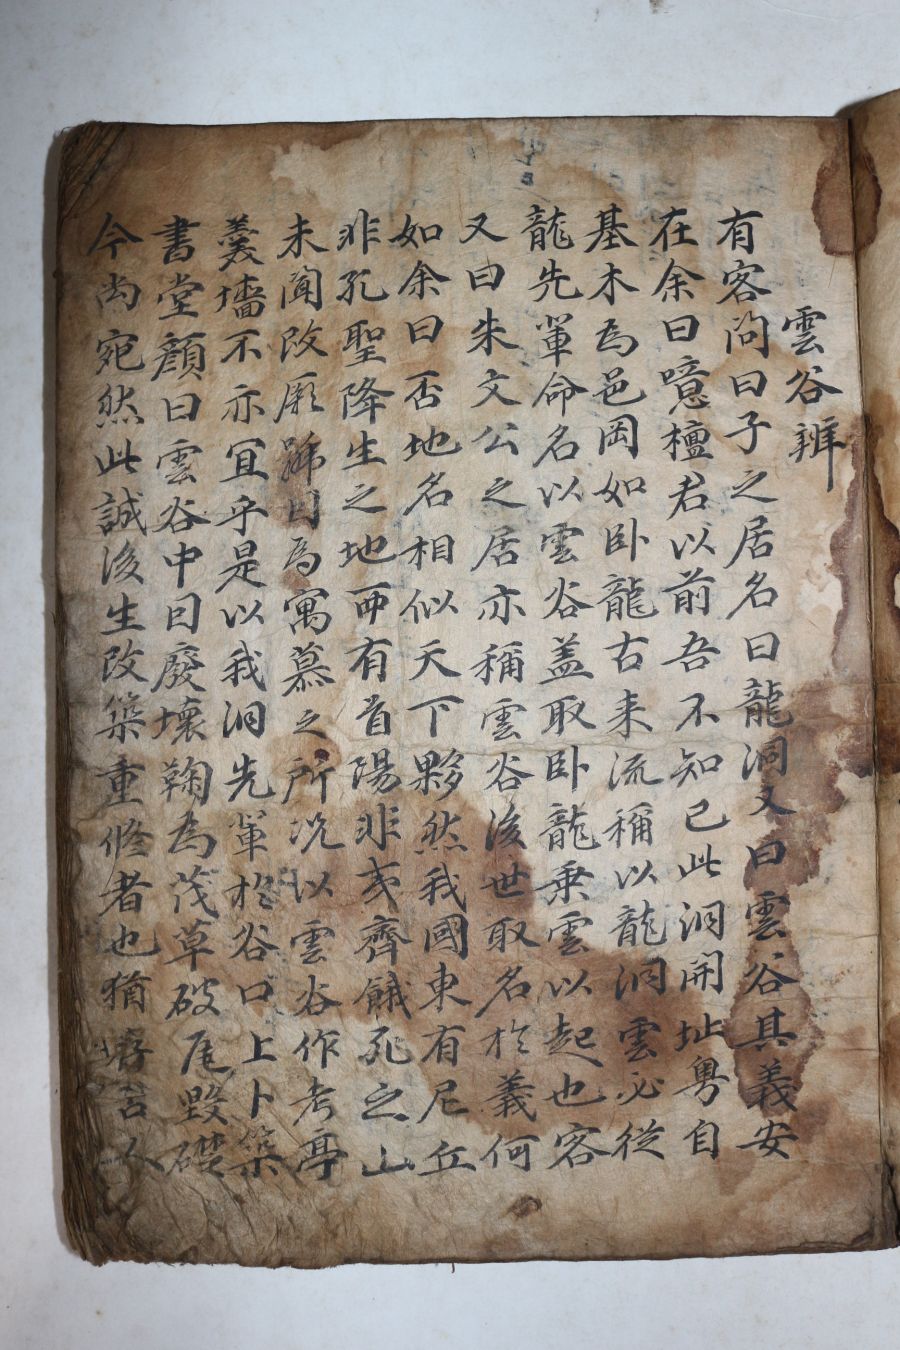 雲谷辨
有客问曰子之居名曰龍洞又曰雲谷其義安
在余曰噫檀君以前吾不知已此洞開址粤自
基木為邑岡如卧龍古来流稱以龍洞雲必從
龍先軰命名以雲谷盖取卧龍乗雲以起也客
又曰朱文公之居亦稱雲谷後世取名於義何
如余曰否地名相似天下夥然我國東有尼丘
非孔聖降生之地西有首陽非夷齊餓死之山
未聞改厥號曰為寓慕之所况以雲谷作考亭
羹墻不亦冝乎是以我洞先軰於谷口上卜築
書堂顔曰雲谷中因廢壞鞠為茂草破瓦毁礎
今尚宛然此誠後生改築重修者也猶